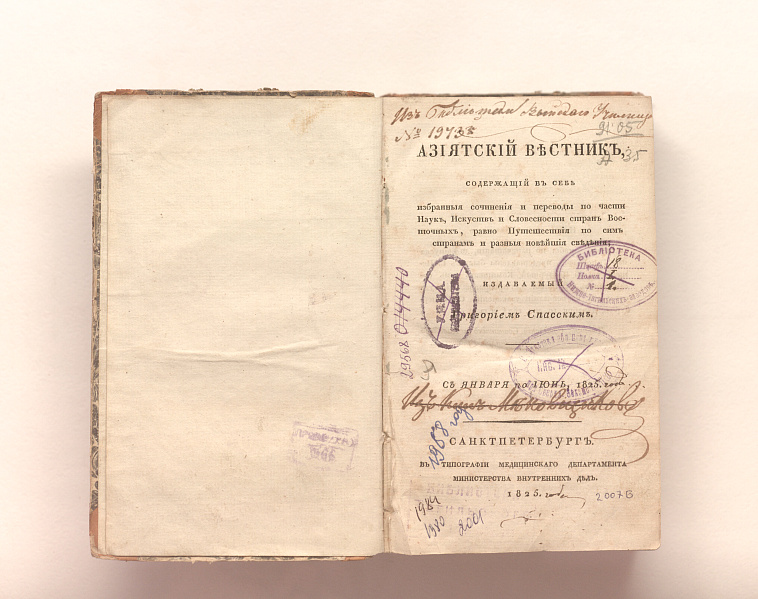 Изъ Библіотеки Выйскаго Училища
№ 1973
Я 05
А 35
АЗІЯТСКІЙ ВѢСТНИКЪ,
СОДЕРЖАЩІЙ ВЪ СЕБѢ
избранныя сочиненія и переводы по части
Наукъ, Искуствъ и Словесности странъ Вос-
точныхъ, равно Путешествія по симъ
странамъ и разныя новѣйшія свѣденія;
БИБЛІОТЕКА
Шкафъ
Полка
№ 1.
ИЗДАВАЕМЫЙ
Григоріемъ Спасскимъ.
29568 014440
СЪ ЯНВАРЯ по ІЮНЬ, 1825. года
Изъ книгъ
1968 год
САНКТПЕТЕРБУРГЪ.
ВЪ ТИПОГРАФІИ МЕДИЦИНСКАГО ДЕПАРТАМЕНТА
МИНИСТЕРСТВА ВНУТРЕННИХЪ ДѢЛЪ.
1825. года
2007В
1984
1980
2001